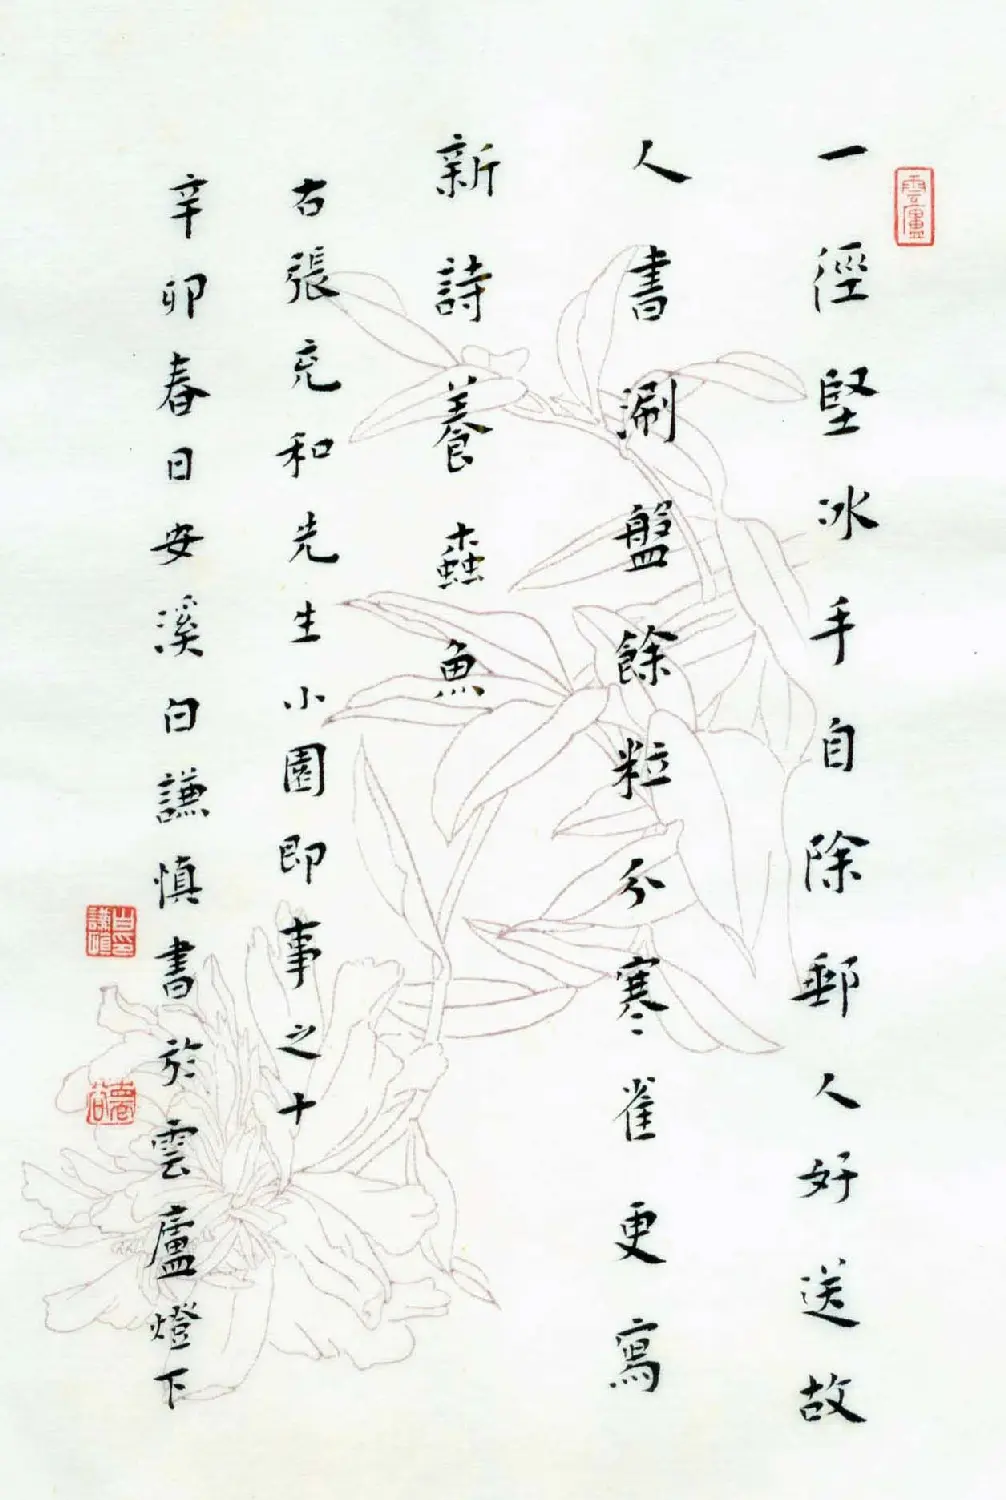 雲廬
一徑堅冰手自除郵人好送故
人書涮盤餘粒分寒雀更寫
新詩養蠹魚
右張充和先生小園即事之十
辛卯春日安溪白謙慎書於雲廬燈下
白謙慎印